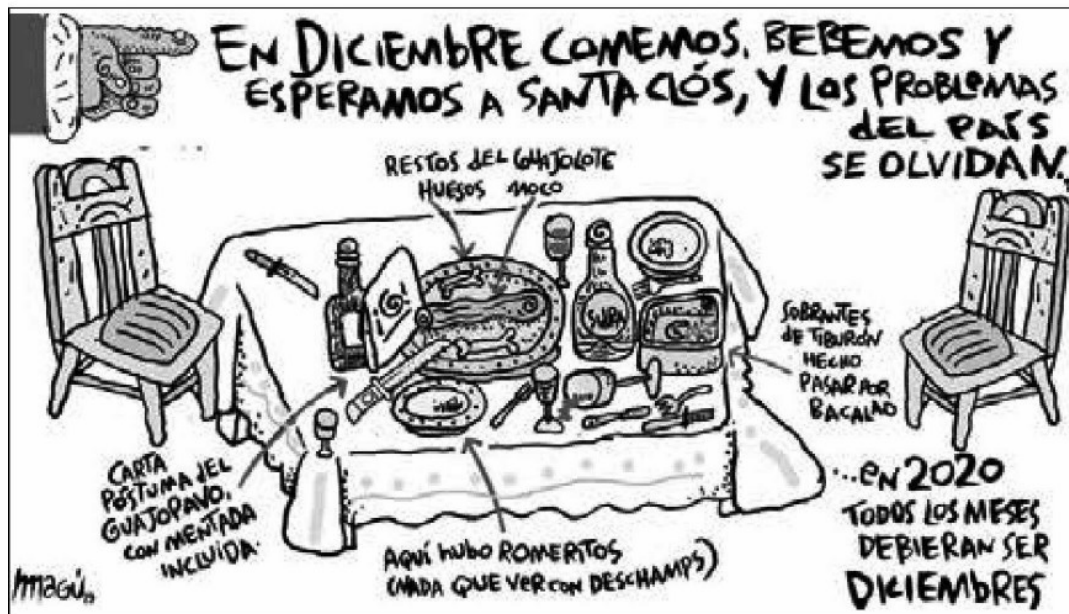 EN DICIEMBRE COMEMOS, BEBEMOS Y
ESPERAMOS A SANTA CLÓS, Y LOS PROBLEMAS
DEL PAÍS
SE OLVIDAN...
RESTOS DEL GUAJOLOTE
HUESOS MOCO
SIDRA
SOBRANTES
DE TIBURÓN
HECHO
PASAR POR
BACALAO
CARTA
PÓSTUMA DEL
GUAJOPAVO,
CON MENTADA
INCLUIDA.
AQUÍ HUBO ROMERITOS
(NADA QUE VER CON DESCHAMPS)
...EN 2020
TODOS LOS MESES
DEBIERAN SER
DICIEMBRES
MAGÚ